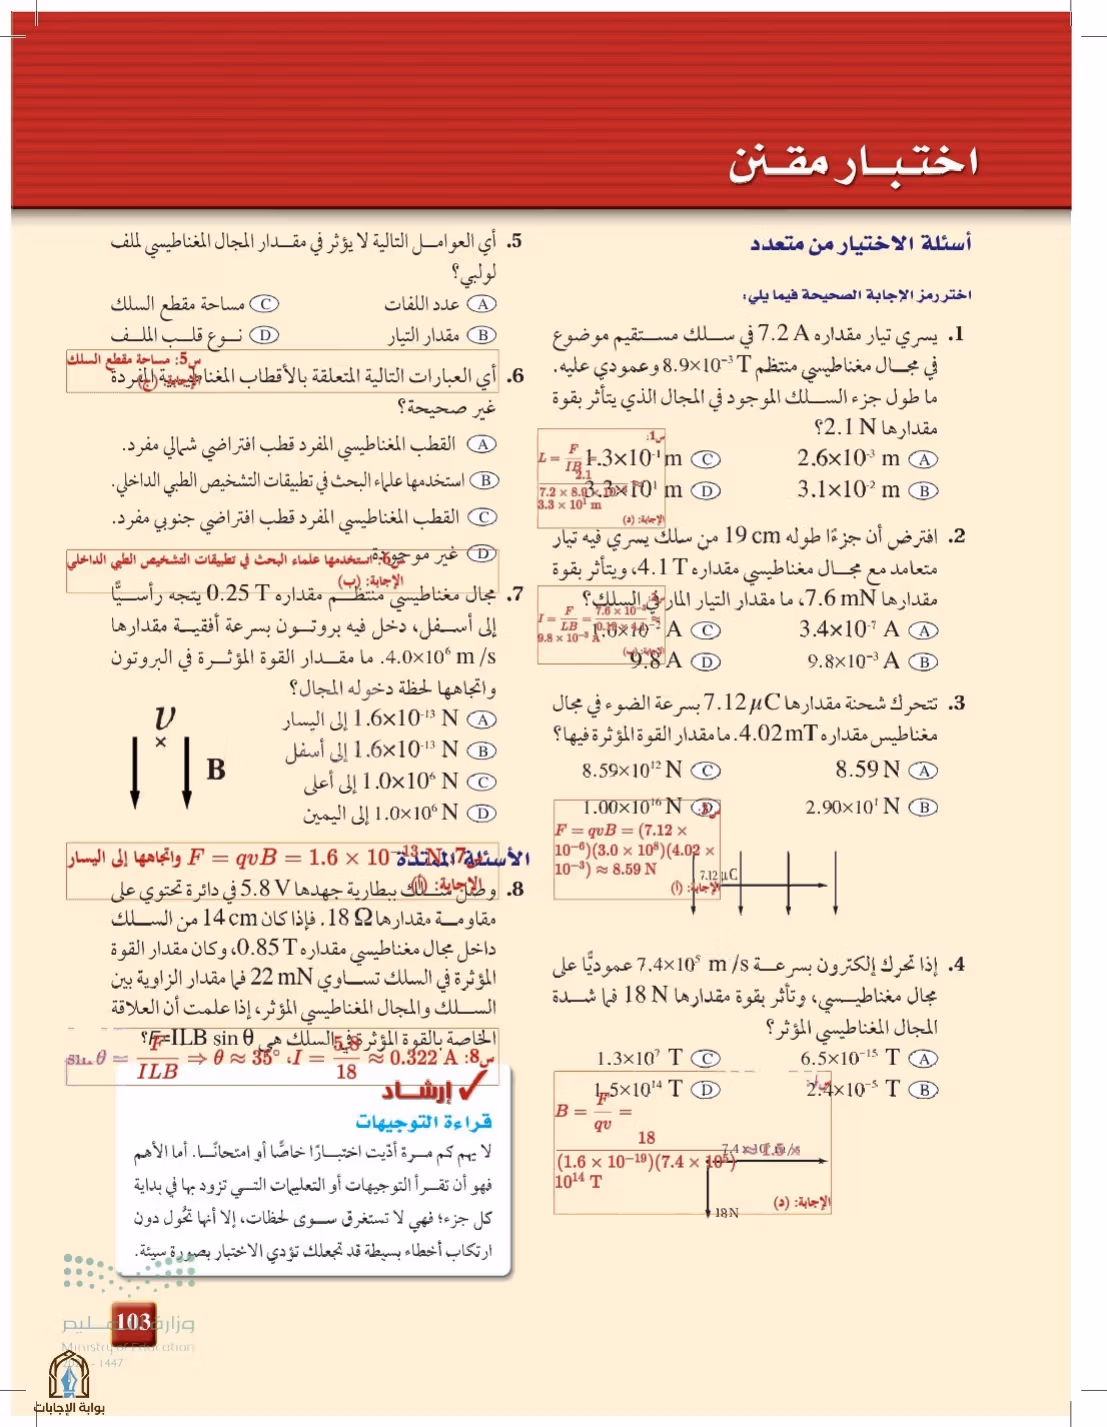 اختبار مقنن
أسئلة الاختيار من متعدد
اختر رمز الإجابة الصحيحة فيما يلي:
1. يسري تيار مقداره 7.2 A في سلك مستقيم موضوع
في مجال مغناطيسي منتظم 8.9×10⁻³ T وعمودي عليه.
ما طول جزء السلك الموجود في المجال الذي يتأثر بقوة
مقدارها 2.1 N؟
A 2.6×10⁻³ m C 1.3×10⁻¹ m
B 3.1×10⁻² m D 3.3×10¹ m
س1:
L = F/IB =
2.1
7.2 × 8.9
3.3 × 10¹ m
الإجابة: (د)
2. افترض أن جزءًا طوله 19 cm من سلك يسري فيه تيار
متعامد مع مجال مغناطيسي مقداره 4.1 T، ويتأثر بقوة
مقدارها 7.6 mN، ما مقدار التيار المار في السلك؟
A 3.4×10⁻⁷ A C 1.0×10⁻² A
B 9.8×10⁻³ A D 9.8 A
I = F/LB = 7.6 × 10⁻³
9.8 × 10⁻³ A
3. تتحرك شحنة مقدارها 7.12 μC بسرعة الضوء في مجال
مغناطيس مقداره 4.02 mT. ما مقدار القوة المؤثرة فيها؟
A 8.59 N C 8.59×10¹² N
B 2.90×10¹ N D 1.00×10¹⁶ N
F = qvB = (7.12 ×
10⁻⁶)(3.0 × 10⁸)(4.02 ×
10⁻³) ≈ 8.59 N
الإجابة: (أ)
7.12 μC
4. إذا تحرك إلكترون بسرعة 7.4×10⁵ m/s عموديًّا على
مجال مغناطيسي، وتأثر بقوة مقدارها 18 N فما شدة
المجال المغناطيسي المؤثر؟
A 6.5×10⁻¹⁵ T C 1.3×10⁷ T
B 2.4×10⁻⁵ T D 1.5×10¹⁴ T
B = F/qv =
18
(1.6 × 10⁻¹⁹)(7.4 × 10⁵) ≈ 1.5 ×
10¹⁴ T
الإجابة: (د)
18 N
5. أي العوامل التالية لا يؤثر في مقدار المجال المغناطيسي لملف
لولبي؟
A عدد اللفات C مساحة مقطع السلك
B مقدار التيار D نوع قلب الملف
س5: مساحة مقطع السلك
الإجابة: (ج)
6. أي العبارات التالية المتعلقة بالأقطاب المغناطيسية المفردة
غير صحيحة؟
A القطب المغناطيسي المفرد قطب افتراضي شمالي مفرد.
B استخدمها علماء البحث في تطبيقات التشخيص الطبي الداخلي.
C القطب المغناطيسي المفرد قطب افتراضي جنوبي مفرد.
D غير موجودة.
س6: استخدمها علماء البحث في تطبيقات التشخيص الطبي الداخلي
الإجابة: (ب)
7. مجال مغناطيسي منتظم مقداره 0.25 T يتجه رأسيًّا
إلى أسفل، دخل فيه بروتون بسرعة أفقية مقدارها
4.0×10⁶ m/s. ما مقدار القوة المؤثرة في البروتون
واتجاهها لحظة دخوله المجال؟
A 1.6×10⁻¹³ N إلى اليسار
B 1.6×10⁻¹³ N إلى أسفل
C 1.0×10⁶ N إلى أعلى
D 1.0×10⁶ N إلى اليمين
υ
×
B
س7: F = qvB = 1.6 × 10⁻¹³ N واتجاهها إلى اليسار
الإجابة: (أ)
الأسئلة الممتدة
8. وصل سلك ببطارية جهدها 5.8 V في دائرة تحتوي على
مقاومة مقدارها 18 Ω. فإذا كان 14 cm من السلك
داخل مجال مغناطيسي مقداره 0.85 T، وكان مقدار القوة
المؤثرة في السلك تساوي 22 mN فما مقدار الزاوية بين
السلك والمجال المغناطيسي المؤثر، إذا علمت أن العلاقة
الخاصة بالقوة المؤثرة في السلك هي F=ILB sin θ؟
س8: I = 5.8/18 ≈ 0.322 A، sin θ = F/ILB ⇒ θ ≈ 35°
✓ إرشاد
قراءة التوجيهات
لا يهم كم مرة أدّيت اختبارًا خاصًّا أو امتحانًا. أما الأهم
فهو أن تقرأ التوجيهات أو التعليمات التي تزود بها في بداية
كل جزء؛ فهي لا تستغرق سوى لحظات، إلا أنها تحُول دون
ارتكاب أخطاء بسيطة قد تجعلك تؤدي الاختبار بصورة سيئة.
وزارة التعليم
103
Ministry of Education
- 1447
بوابة الإجابات